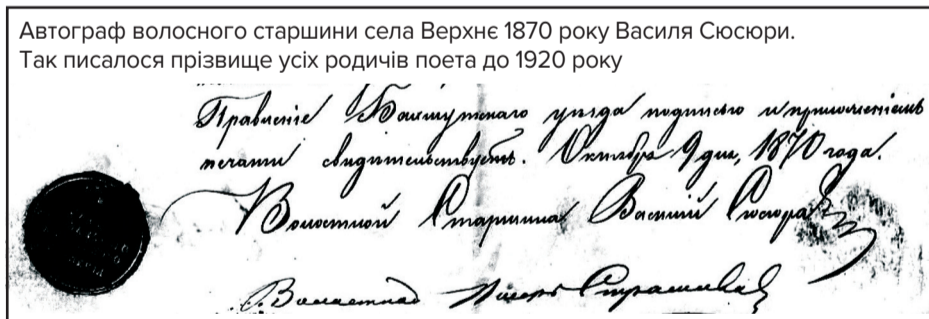 Автограф волосного старшини села Верхнє 1870 року Василя Сюсюри.
Так писалося прізвище усіх родичів поета до 1920 року
Правленіе Бахмутскаго уѣзда подписью и приложеніемъ
печати свидѣтельствуетъ. Октября 9 дня, 1870 года.
Волостной Старшина Василій Сюсюра
Писарь